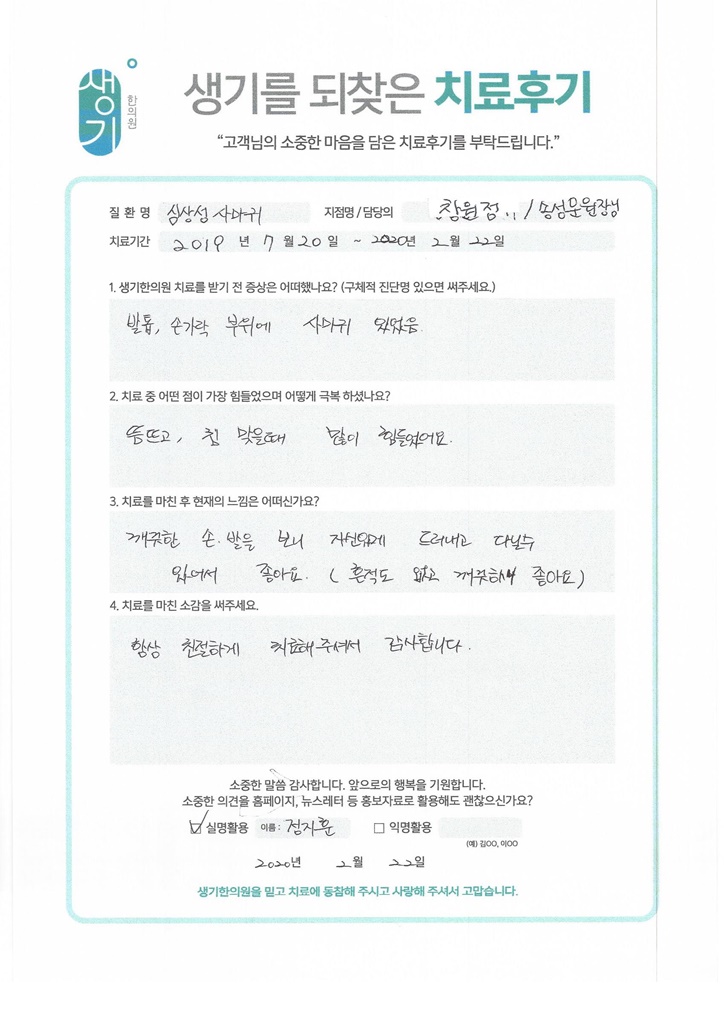 생기
한의원
생기를 되찾은 치료후기
“고객님의 소중한 마음을 담은 치료후기를 부탁드립니다.”
질 환 명 심상성 사마귀 지점명 / 담당의 창원점 / 송성문원장님
치료기간 2019 년 7 월 20 일 ~ 2020년 2 월 22일
1. 생기한의원 치료를 받기 전 증상은 어떠했나요? (구체적 진단명 있으면 써주세요.)
발톱, 손가락 부위에 사마귀 있었음.
2. 치료 중 어떤 점이 가장 힘들었으며 어떻게 극복 하셨나요?
뜸뜨고, 침 맞을때 많이 힘들었어요.
3. 치료를 마친 후 현재의 느낌은 어떠신가요?
깨끗한 손.발을 보니 자신있게 드러내고 다닐수
있어서 좋아요. ( 흔적도 없고 깨끗해서 좋아요)
4. 치료를 마친 소감을 써주세요.
항상 친절하게 치료해주셔서 감사합니다.
소중한 말씀 감사합니다. 앞으로의 행복을 기원합니다.
소중한 의견을 홈페이지, 뉴스레터 등 홍보자료로 활용해도 괜찮으신가요?
실명활용 이름 : 점지훈 익명활용
(예) 김OO, 이OO
2020년 2월 22일
생기한의원을 믿고 치료에 동참해 주시고 사랑해 주셔서 고맙습니다.